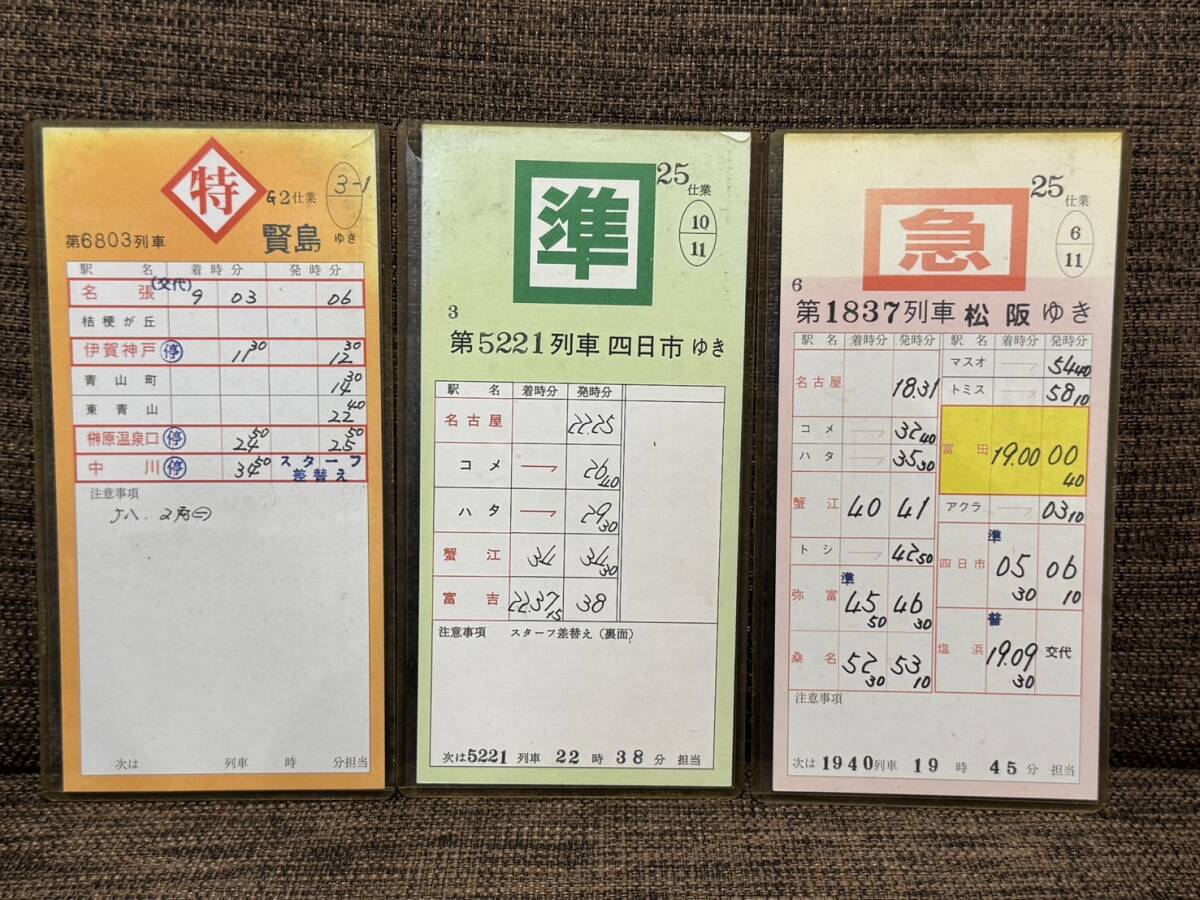 特
G2仕業
3-1
第6803列車 賢島 ゆき
駅名 着時分 発時分
名張 (交代) 9 03 06
桔梗が丘
伊賀神戸 停 11 30 12 30
青山町 14 30
東青山 22 40
榊原温泉口 停 24 50 25 50
中川 停 34 50 スターフ差替え
注意事項
次は 列車 時 分担当
準
25仕業
10
11
3
第5221列車 四日市 ゆき
駅名 着時分 発時分
名古屋 22.25
コメ → 26 40
ハタ → 29 30
蟹江 34 34 30
富吉 22 37 15 38
注意事項 スターフ差替え(裏面)
次は5221列車 22時 38分 担当
急
25仕業
6
11
6
第1837列車 松阪 ゆき
駅名 着時分 発時分
名古屋 18.31
コメ → 32 40
ハタ → 35 30
蟹江 40 41
トシ → 42 50
弥富 準 45 50 46 30
桑名 52 30 53 10
駅名 着時分 発時分
マスオ → 54 40
トミス → 58 10
富田 19.00 00 40
アクラ → 03 10
四日市 準 05 30 06 10
塩浜 普 19.09 30 交代
注意事項
次は1940列車 19時 45分 担当